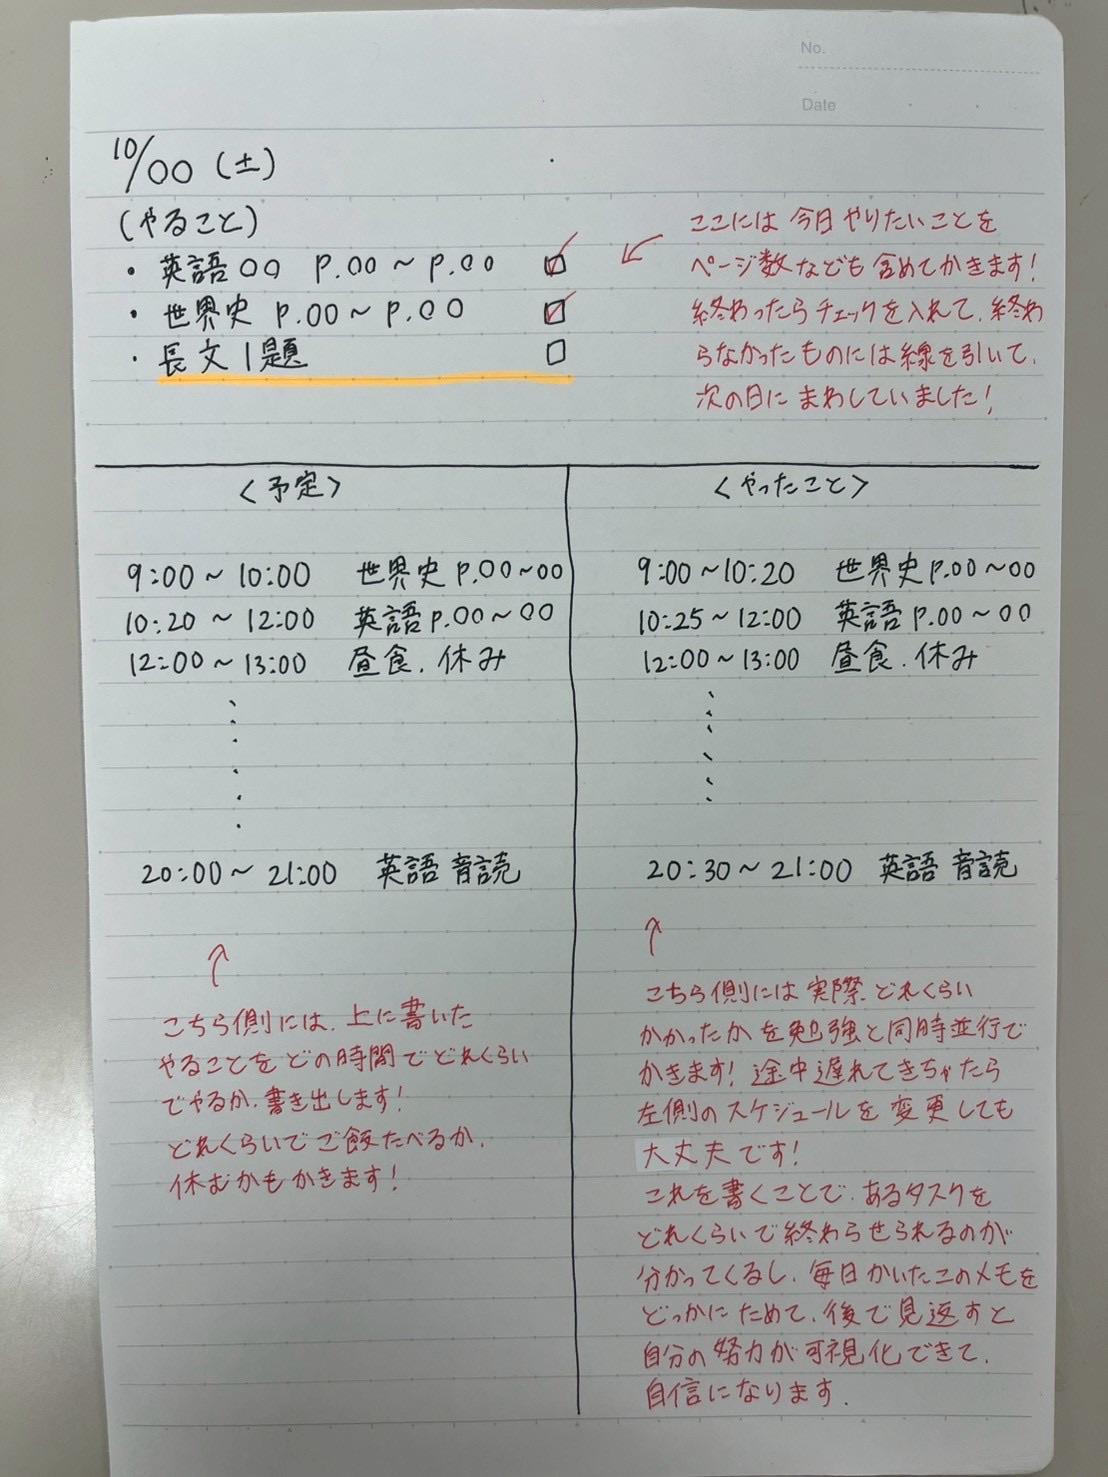 No.
Date
10/00 (土)
(やること)
・英語〇〇 P.00～P.00 ☑
・世界史 P.00～P.00 ☑
・長文1題 □
ここには今日やりたいことを
ページ数なども含めてかきます!
終わったらチェックを入れて、終わ
らなかったものには線を引いて、
次の日にまわしていました!
<予定>
9:00～10:00 世界史P.00～00
10:20～12:00 英語P.00～00
12:00～13:00 昼食、休み
20:00～21:00 英語 音読
こちら側には、上に書いた
やることをどの時間でどれくらい
でやるか、書き出します!
どれくらいでご飯たべるか、
休むかもかきます!
<やったこと>
9:00～10:20 世界史P.00～00
10:25～12:00 英語P.00～00
12:00～13:00 昼食、休み
20:30～21:00 英語 音読
こちら側には実際、どれくらい
かかったかを勉強と同時並行で
かきます!途中遅れてきちゃたら
左側のスケジュールを変更しても
大丈夫です!
これを書くことで、あるタスクを
どれくらいで終わらせられるのが
分かってくるし、毎日かいたこのメモを
どっかにためて、後で見返すと
自分の努力が可視化できて、
自信になります.